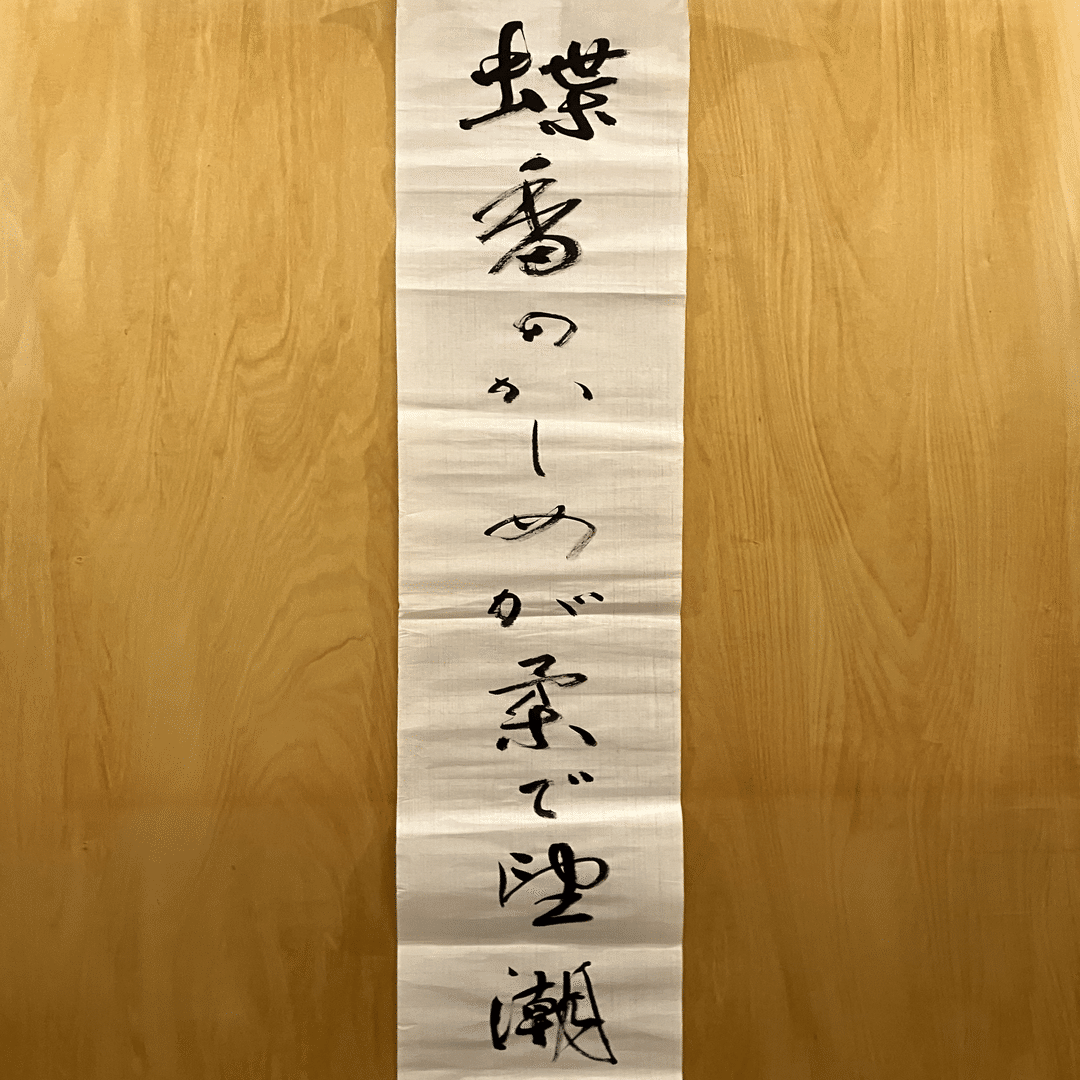 蝶番のかしめが柔で望潮